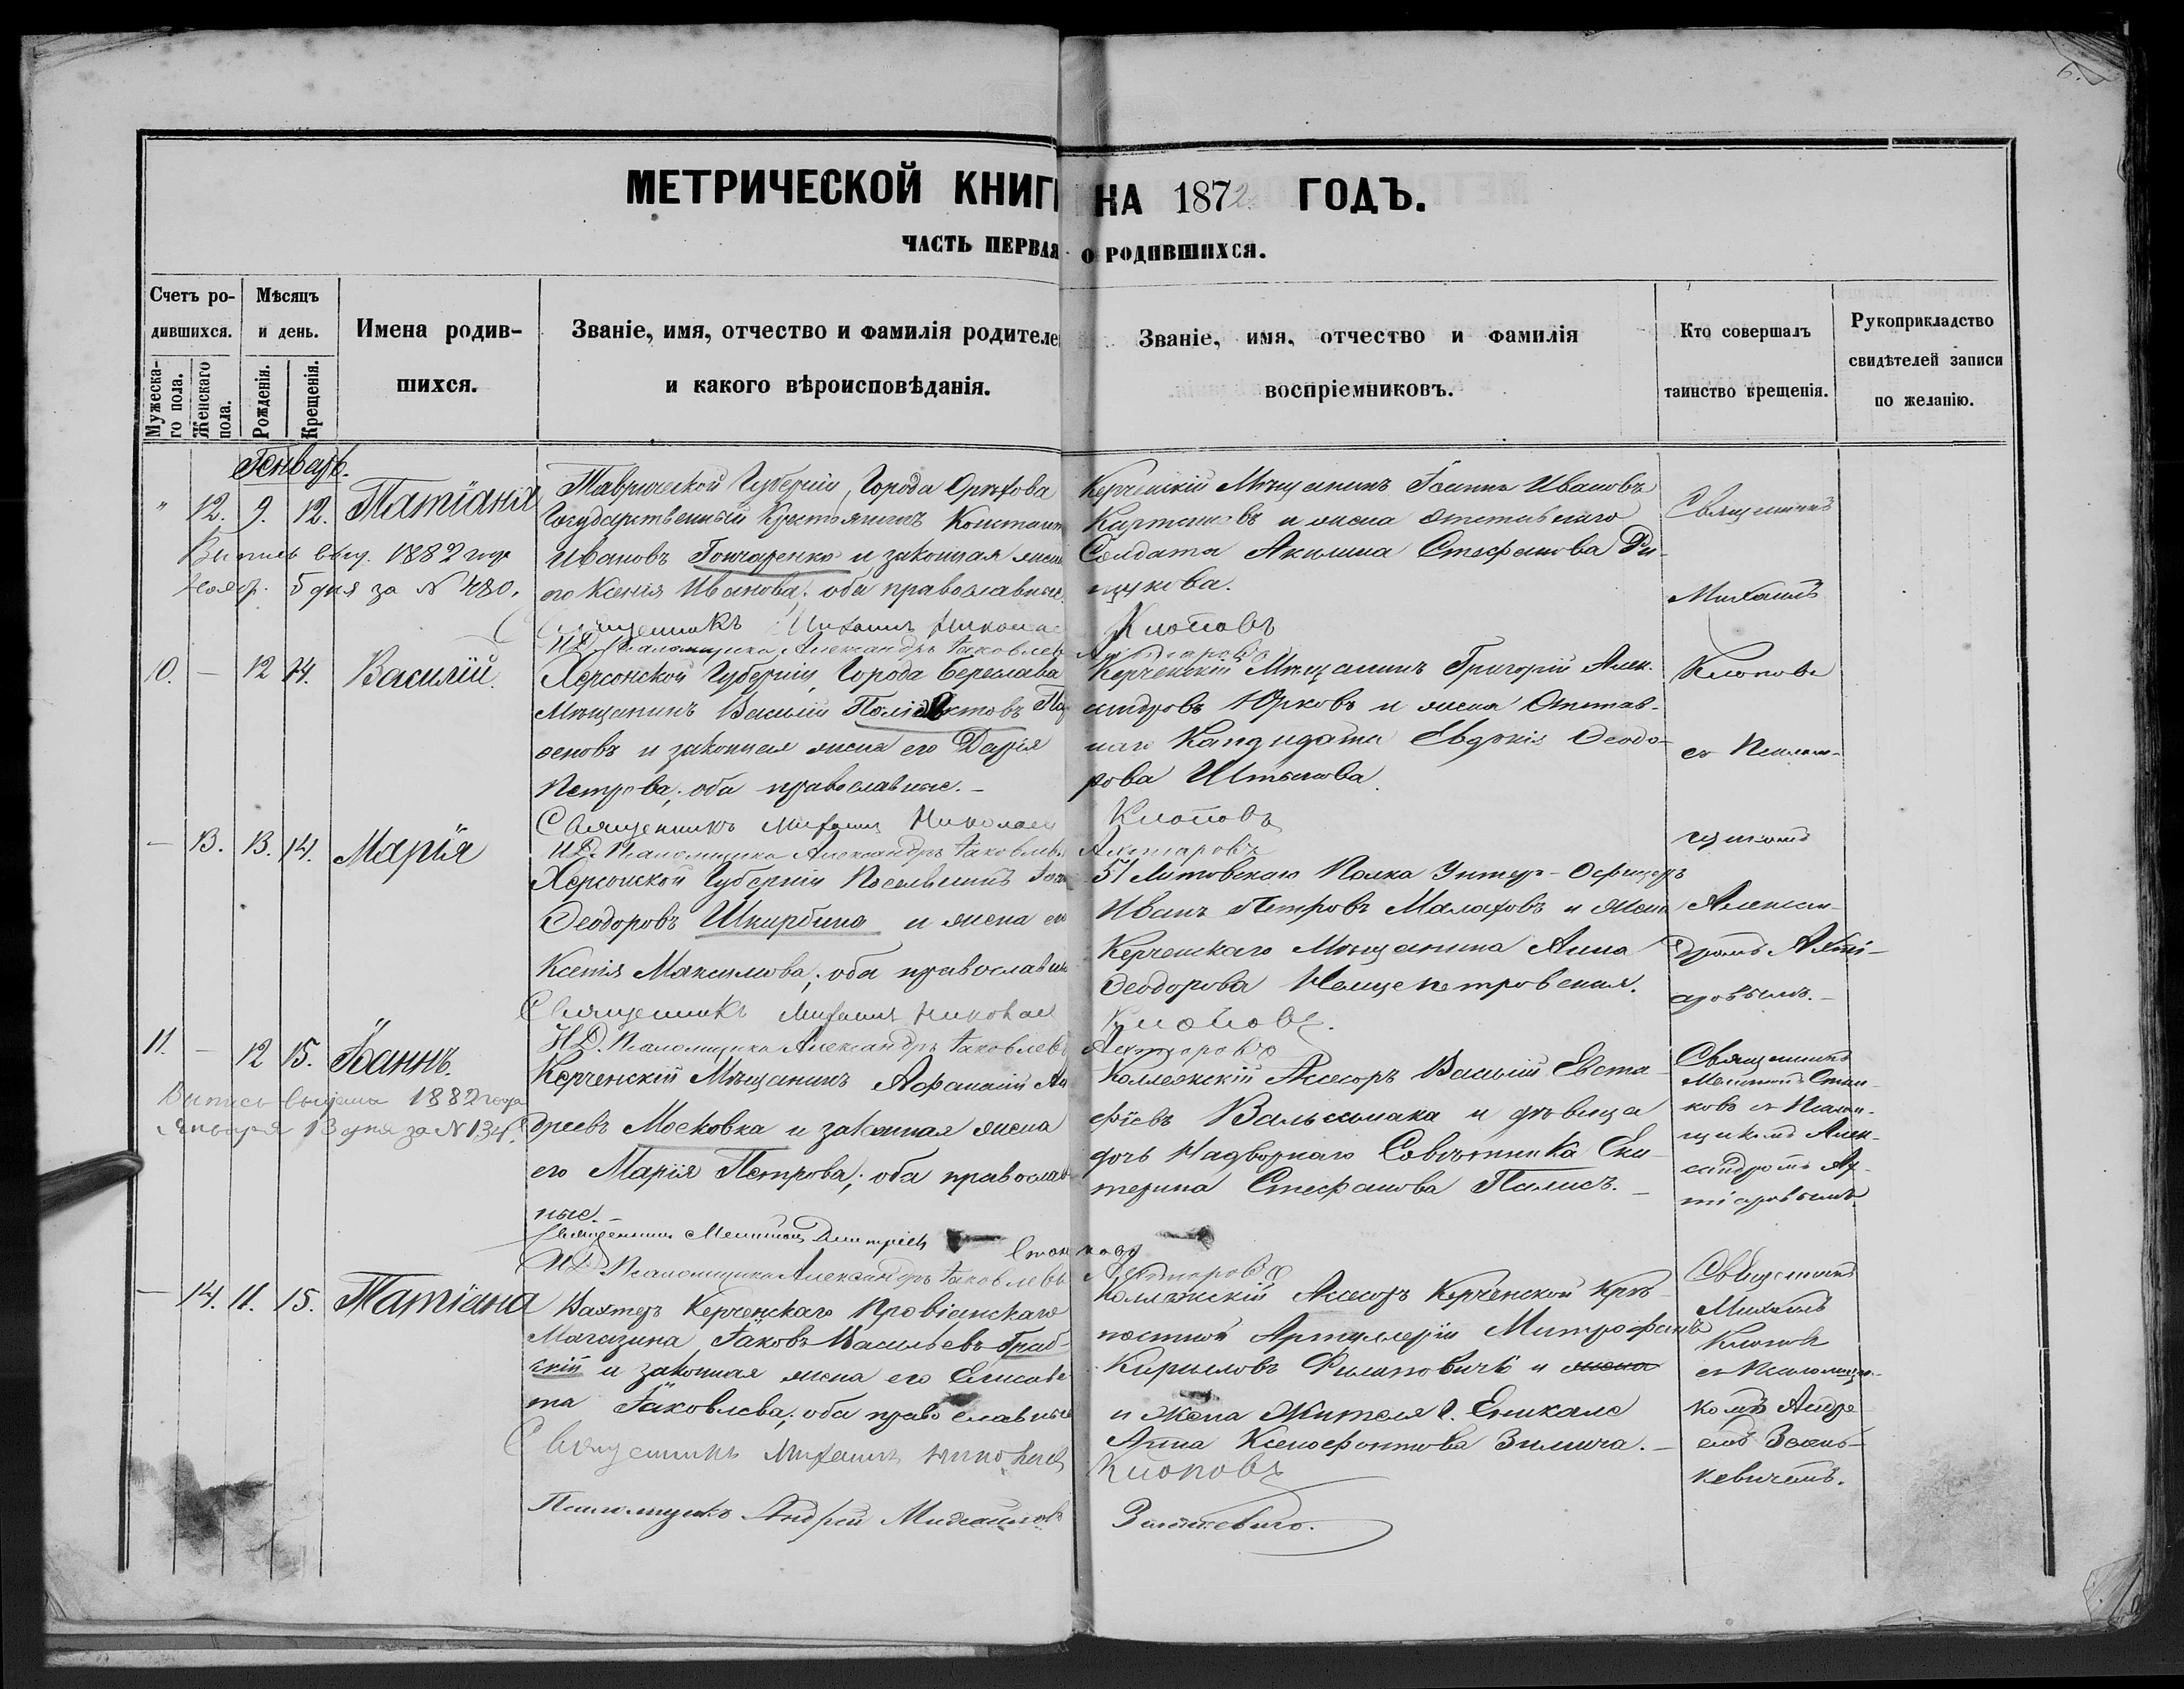 6.
МЕТРИЧЕСКОЙ КНИГ НА 1872 ГОДЪ.
ЧАСТЬ ПЕРВАЯ О РОДИВШИХСЯ.
Счетъ ро-
дившихся.
Мужеска-
го пола.
Женскаго
пола.
Мѣсяцъ
и день.
Рожденія.
Крещенія.
Имена родив-
шихся.
Званіе, имя, отчество и фамилія родителе
и какого вѣроисповѣданія.
Званіе, имя, отчество и фамилія
воспріемниковъ.
Кто совершалъ
таинство крещенія.
Рукоприкладство
свидѣтелей записи
по желанію.
Генварь.
" 12. 9. 12. Татіана
Выпись выд. 1882 года
Ноябр. 5 дня за № 480.
Таврической Губерніи, Города Орѣхова
Государственный Крестьянинъ Констант
Ивановъ Гончаренко и законная жена
его Ксенія Иванова; оба православные.
Священникъ Михаилъ Никола
И.Д. Псаломщика Александръ Іаковлев
Керченскій Мѣщанинъ Іоаннъ Ивановъ
и жена отставнаго
Солдата Акилина Стефанова
Клоповъ
Священникъ
Михаилъ
Клоповъ
съ Псалом-
щикомъ
Алексан-
дромъ Ахті-
аровымъ.
10. — 12 14. Василій.
Херсонской Губерніи, Города Береслава
Мѣщанинъ Василій Поліектовъ
и законная жена его Дарія
Петрова; оба православные. —
Священникъ Михаилъ Николаев
И.Д. Псаломщика Александръ Іаковлевъ
Керченскій Мѣщанинъ Григорій Алек-
сандровъ Юрковъ и жена Отстав-
наго Кандидата Евдокія Ѳеодо-
рова
Клоповъ
Ахтіаровъ
— 13. 13. 14. Марія
Херсонской Губерніи Поселянинъ
Ѳеодоровъ Шкирбина и жена его
Ксенія Максимова; оба православны
Священникъ Михаилъ Николаев
И.Д. Псаломщика Александръ Іаковлевъ
51 Литовскаго Полка Унтер-Офицеръ
Иванъ Петровъ Малаховъ и жена
Керченскаго Мѣщанина Анна
Ѳеодорова
Клоповъ.
Ахтіаровъ
11. — 12 15. Іоаннъ.
Выпись выдана 1882 года
Января 13 дня за № 134.
Керченскій Мѣщанинъ Афанасій Ан
дреевъ Московка и законная жена
его Марія Петрова; оба православ
ные. —
Священникъ Мелитонъ Димитріевъ Стан ковъ
И.Д. Псаломщика Александръ Іаковлевъ Ахтіаровъ
Коллежскій Ассесоръ Василій Евста-
фіевъ и дѣвица
дочь Надворнаго Совѣтника Ека-
терина Стефанова —
Священникъ
Мелитонъ Стан-
ковъ съ Псалом-
щикомъ Алек-
сандромъ Ах-
тіаровымъ.
— 14. 11. 15. Татіана
Вахтеръ Керченскаго Провіантскаго
Магазина Іаковъ Васильевъ Граб-
скій и законная жена его Елисаве
та Іаковлева; оба православные
Священникъ Михаилъ Николаев
Псаломщикъ Андрей Михайловъ
Коллежскій Ассесоръ Керченской Крѣ-
постной Артиллеріи Митрофанъ
Кириловъ Филиповичъ и жена
и жена Жителя г. Еникале
Анна Ксенофонтова —
Клоповъ
Занькевичъ.
Священникъ
Михаилъ
Клоповъ
съ Псаломщи-
комъ Андре
емъ Зань-
кевичемъ.